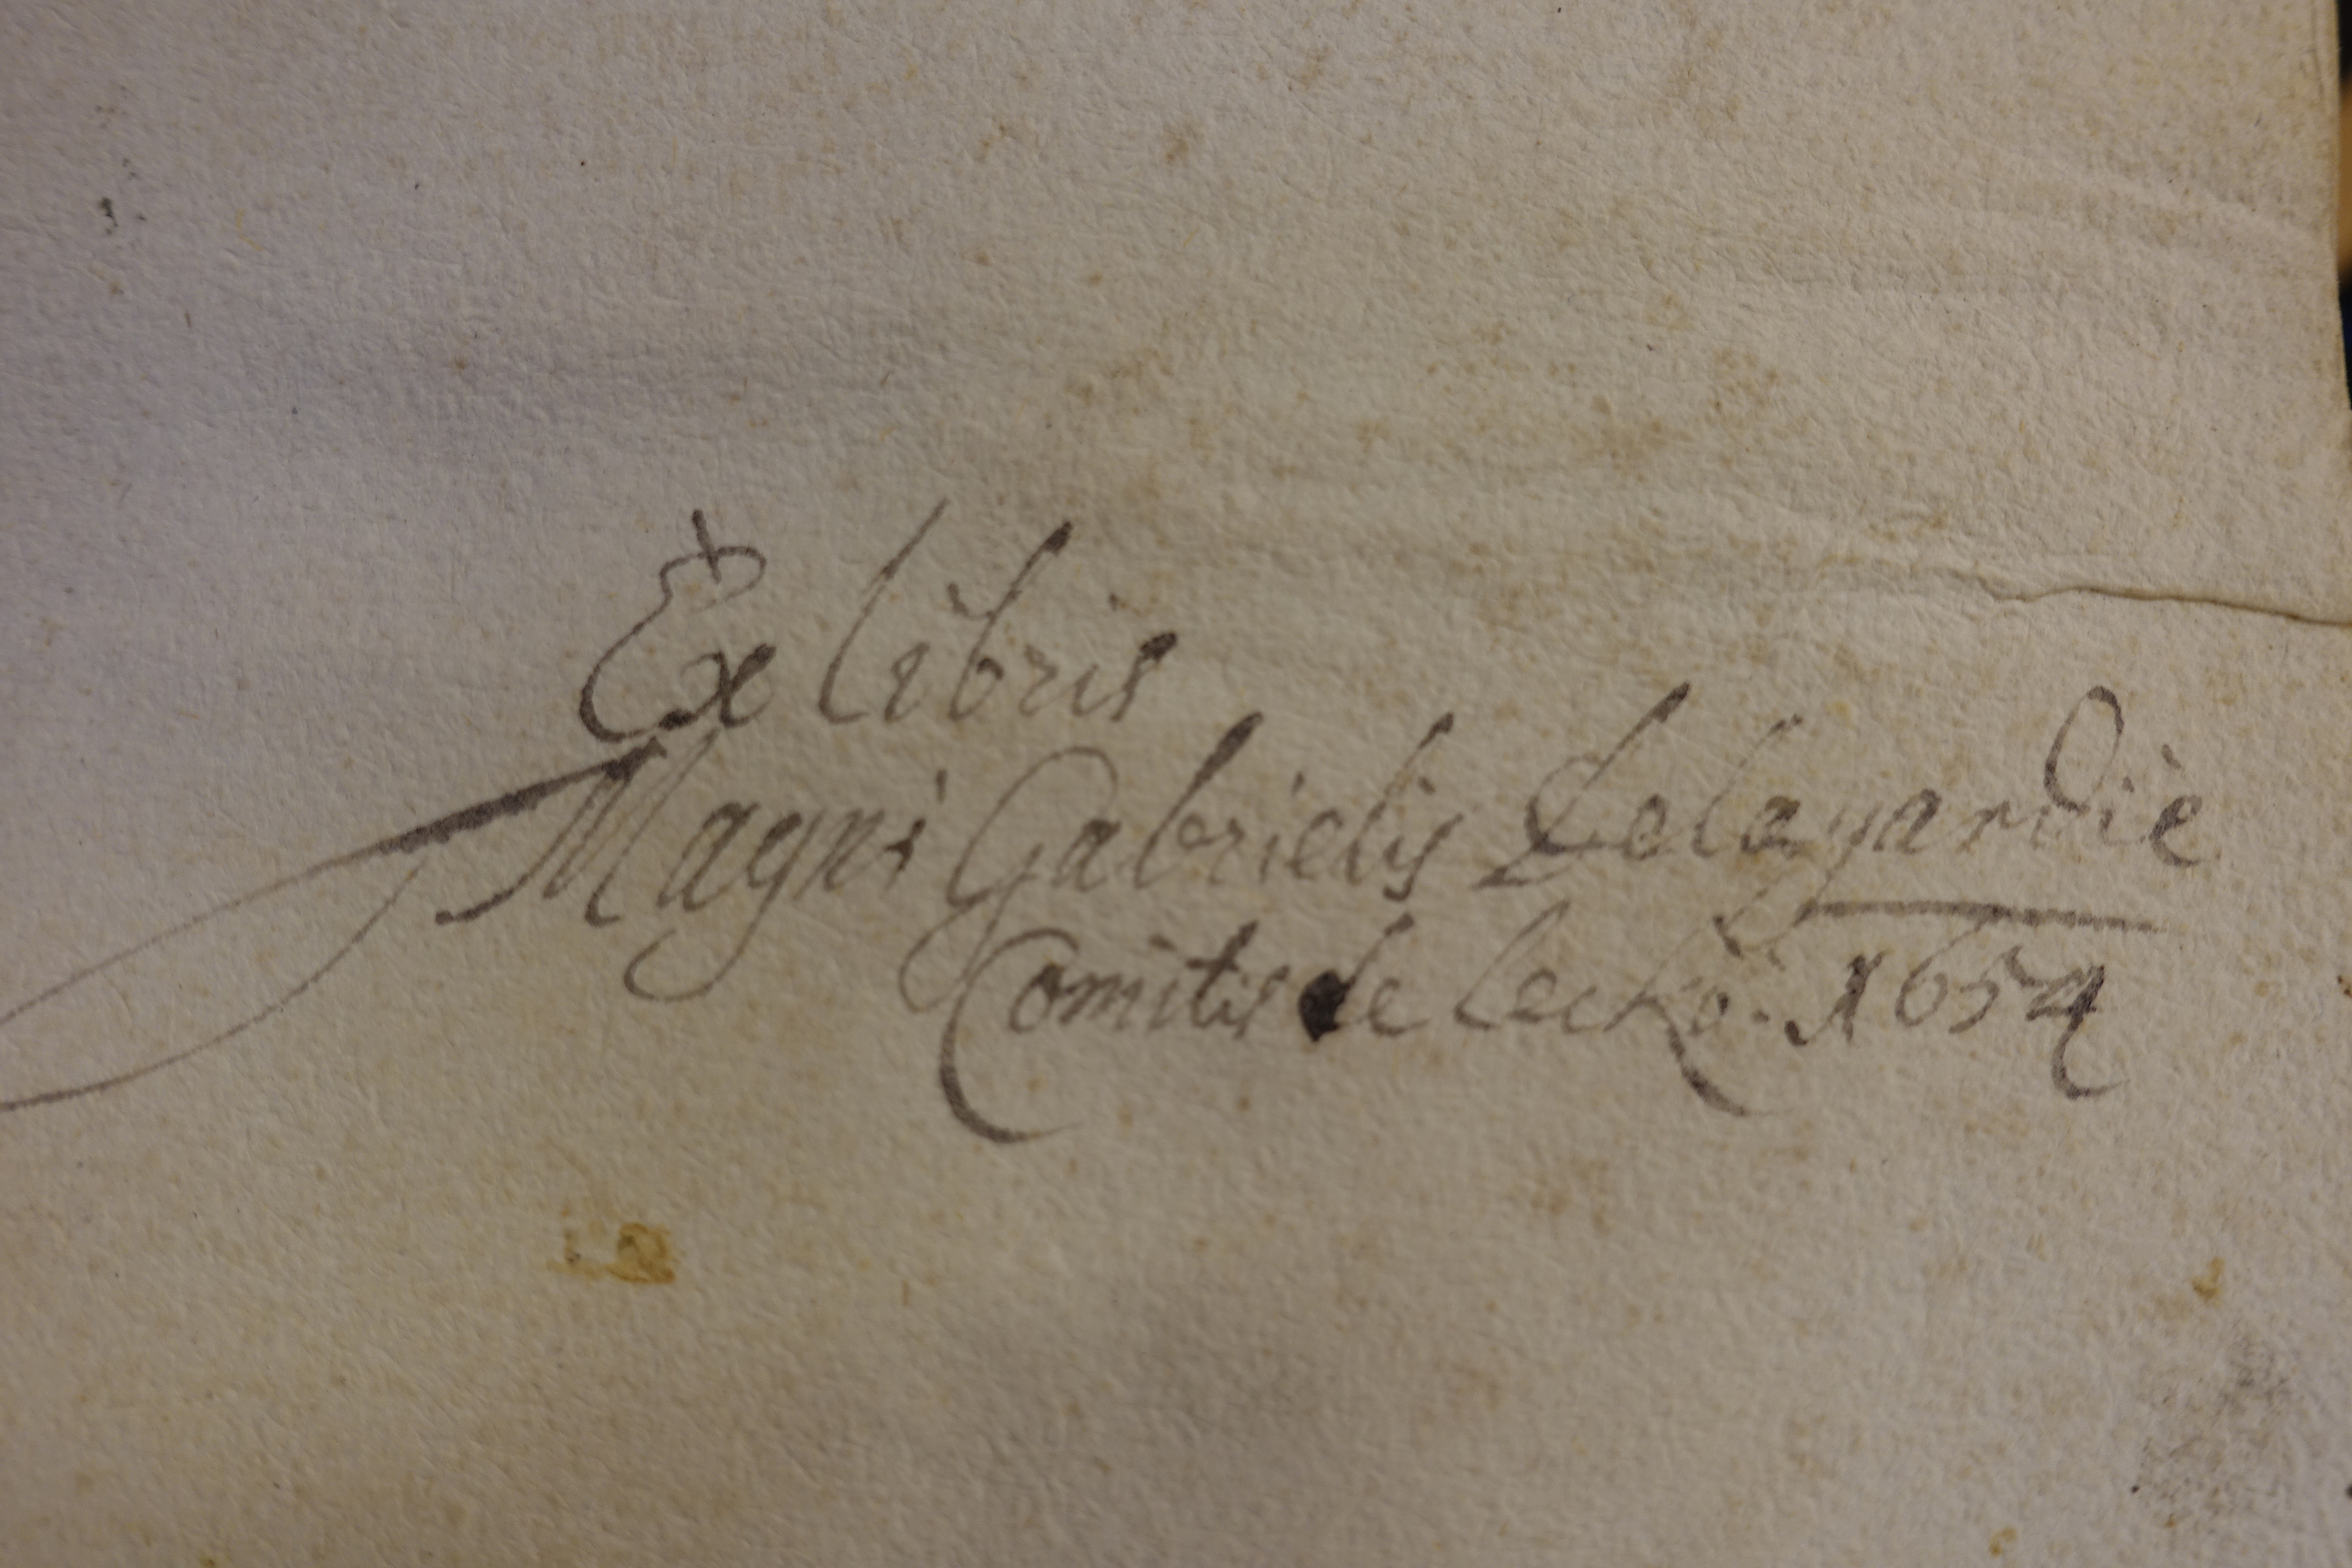 Ex libris
Magni Gabrielis Delagardie
Comitis de Leckö. 1654